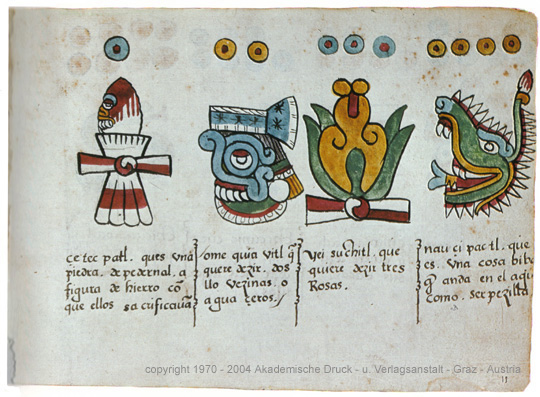 ce tec patl. ques una
piedra. de pedernal. a
figura de hierro cõ
que ellos sacrificavã
ome quia vitl q̃
quere dezir. dos
llo vezinas. o
agua çeros./
yei suchitl. que
quiere dezir tres
Rosas.
nau ci pactl. que
es. una cosa
q̃ anda en el
como. serpezilla
copyright 1970 - 2004 Akademische Druck - u. Verlagsanstalt - Graz - Austria
11